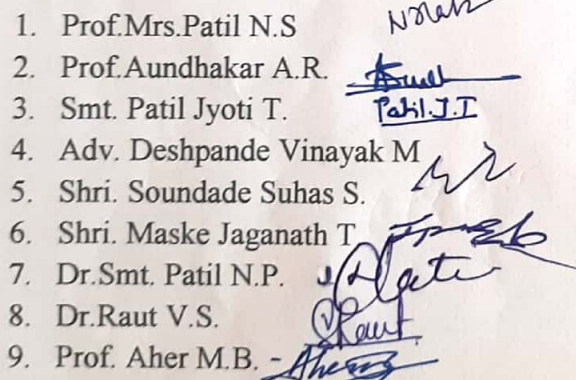 1. Prof.Mrs.Patil N.S
2. Prof.Aundhakar A.R.
3. Smt. Patil Jyoti T. Patil.J.T
4. Adv. Deshpande Vinayak M
5. Shri. Soundade Suhas S.
6. Shri. Maske Jaganath T
7. Dr.Smt. Patil N.P.
8. Dr.Raut V.S. Raut
9. Prof. Aher M.B. -